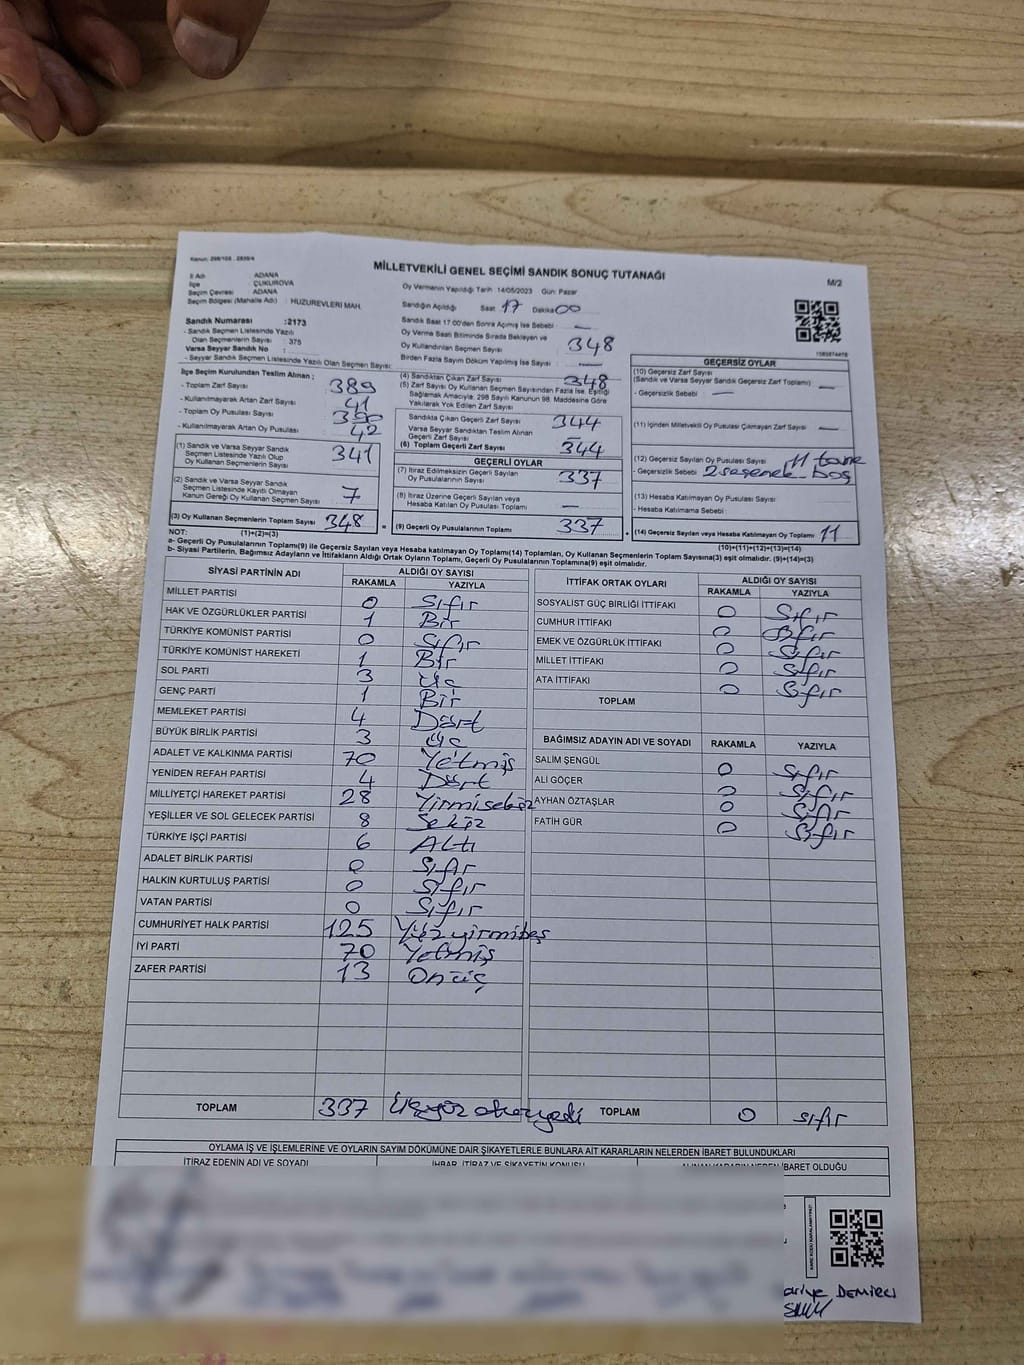 Kanun: 298/105 , 2839/4
MİLLETVEKİLİ GENEL SEÇİMİ SANDIK SONUÇ TUTANAĞI
M/2
İl Adı : ADANA
İlçe : ÇUKUROVA
Seçim Çevresi : ADANA
Seçim Bölgesi (Mahalle Adı) : HUZUREVLERİ MAH.
Sandık Numarası :2173
- Sandık Seçmen Listesinde Yazılı
Olan Seçmenlerin Sayısı : 375
Varsa Seyyar Sandık No :
- Seyyar Sandık Seçmen Listesinde Yazılı Olan Seçmen Sayısı:
Oy Vermenin Yapıldığı Tarih :14/05/2023 Gün: Pazar
Sandığın Açıldığı Saat 17 Dakika 00
Sandık Saat 17:00'den Sonra Açılmış İse Sebebi : —
Oy Verme Saati Bitiminde Sırada Bekleyen ve
Oy Kullandırılan Seçmen Sayısı : 348
Birden Fazla Sayım Döküm Yapılmış İse Sayısı : —
İlçe Seçim Kurulundan Teslim Alınan ;
- Toplam Zarf Sayısı : 389
- Kullanılmayarak Artan Zarf Sayısı : 41
- Toplam Oy Pusulası Sayısı : 390
- Kullanılmayarak Artan Oy Pusulası : 42
(1) Sandık ve Varsa Seyyar Sandık
Seçmen Listesinde Yazılı Olup
Oy Kullanan Seçmenlerin Sayısı : 341
(2) Sandık ve Varsa Seyyar Sandık
Seçmen Listesinde Kayıtlı Olmayan
Kanun Gereği Oy Kullanan Seçmen Sayısı : 7
(3) Oy Kullanan Seçmenlerin Toplam Sayısı : 348
(1)+(2)=(3)
(4) Sandıktan Çıkan Zarf Sayısı : 348
(5) Zarf Sayısı Oy Kullanan Seçmen Sayısından Fazla İse, Eşitliği
Sağlamak Amacıyla, 298 Sayılı Kanunun 98. Maddesine Göre
Yakılarak Yok Edilen Zarf Sayısı :
Sandıkta Çıkan Geçerli Zarf Sayısı : 344
Varsa Seyyar Sandıktan Teslim Alınan
Geçerli Zarf Sayısı : —
(6) Toplam Geçerli Zarf Sayısı : 344
GEÇERLİ OYLAR
(7) İtiraz Edilmeksizin Geçerli Sayılan
Oy Pusulalarının Sayısı : 337
(8) İtiraz Üzerine Geçerli Sayılan veya
Hesaba Katılan Oy Pusulası Toplamı : —
(9) Geçerli Oy Pusulalarının Toplamı : 337
GEÇERSİZ OYLAR
(10) Geçersiz Zarf Sayısı
(Sandık ve Varsa Seyyar Sandık Geçersiz Zarf Toplamı) : —
- Geçersizlik Sebebi : —
(11) İçinden Milletvekili Oy Pusulası Çıkmayan Zarf Sayısı : —
(12) Geçersiz Sayılan Oy Pusulası Sayısı : 11 tane
- Geçersizlik Sebebi : 2 seçenek boş
(13) Hesaba Katılmayan Oy Pusulası Sayısı :
- Hesaba Katılmama Sebebi :
(14) Geçersiz Sayılan veya Hesaba Katılmayan Oy Toplamı : 11
(10)+(11)+(12)+(13)=(14)
NOT:
a- Geçerli Oy Pusulalarının Toplamı(9) ile Geçersiz Sayılan veya Hesaba katılmayan Oy Toplamı(14) Toplamları, Oy Kullanan Seçmenlerin Toplam Sayısına(3) eşit olmalıdır. (9)+(14)=(3)
b- Siyasi Partilerin, Bağımsız Adayların ve İttifakların Aldığı Ortak Oyların Toplamı, Geçerli Oy Pusulalarının Toplamına(9) eşit olmalıdır.
SİYASİ PARTİNİN ADI ALDIĞI OY SAYISI
RAKAMLA YAZIYLA
MİLLET PARTİSİ 0 Sıfır
HAK VE ÖZGÜRLÜKLER PARTİSİ 1 Bir
TÜRKİYE KOMÜNİST PARTİSİ 0 Sıfır
TÜRKİYE KOMÜNİST HAREKETİ 1 Bir
SOL PARTİ 3 Üç
GENÇ PARTİ 1 Bir
MEMLEKET PARTİSİ 4 Dört
BÜYÜK BİRLİK PARTİSİ 3 Üç
ADALET VE KALKINMA PARTİSİ 70 Yetmiş
YENİDEN REFAH PARTİSİ 4 Dört
MİLLİYETÇİ HAREKET PARTİSİ 28 Yirmisekiz
YEŞİLLER VE SOL GELECEK PARTİSİ 8 Sekiz
TÜRKİYE İŞÇİ PARTİSİ 6 Altı
ADALET BİRLİK PARTİSİ 0 Sıfır
HALKIN KURTULUŞ PARTİSİ 0 Sıfır
VATAN PARTİSİ 0 Sıfır
CUMHURİYET HALK PARTİSİ 125 Yüzyirmibeş
İYİ PARTİ 70 Yetmiş
ZAFER PARTİSİ 13 Onüç
TOPLAM 337 Üçyüz otuzyedi
İTTİFAK ORTAK OYLARI ALDIĞI OY SAYISI
RAKAMLA YAZIYLA
SOSYALİST GÜÇ BİRLİĞİ İTTİFAKI 0 Sıfır
CUMHUR İTTİFAKI 0 Sıfır
EMEK VE ÖZGÜRLÜK İTTİFAKI 0 Sıfır
MİLLET İTTİFAKI 0 Sıfır
ATA İTTİFAKI 0 Sıfır
TOPLAM
BAĞIMSIZ ADAYIN ADI VE SOYADI RAKAMLA YAZIYLA
SALİM ŞENGÜL 0 Sıfır
ALİ GÖÇER 0 Sıfır
AYHAN ÖZTAŞLAR 0 Sıfır
FATİH GÜR 0 Sıfır
TOPLAM 0 sıfır
OYLAMA İŞ VE İŞLEMLERİNE VE OYLARIN SAYIM DÖKÜMÜNE DAİR ŞİKAYETLERLE BUNLARA AİT KARARLARIN NELERDEN İBARET BULUNDUKLARI
İTİRAZ EDENİN ADI VE SOYADI
İHBAR, İTİRAZ VE ŞİKAYETİN KONUSU
ALINAN KARARIN NEDEN İBARET OLDUĞU
DEMİRCİ